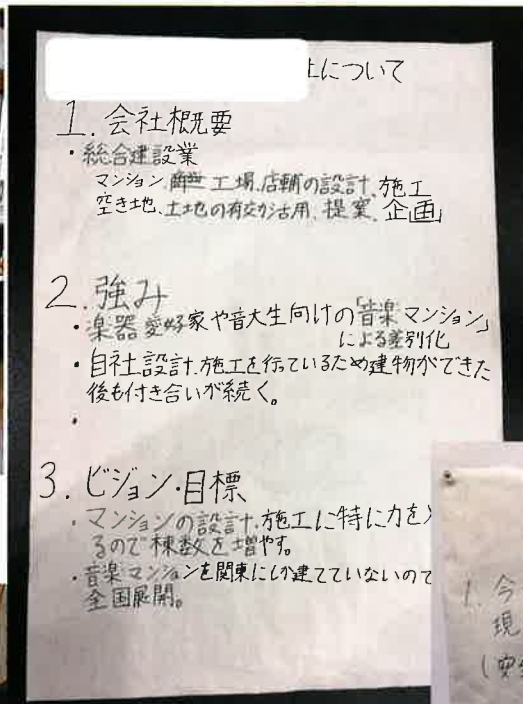 について
1. 会社概要
・総合建設業
マンション、工場、店輔の設計、施工
空き地、土地の有効活用、提案、企画
2. 強み
・楽器愛好家や音大生向けの「音楽マンション」
による差別化
・自社設計、施工を行っているため建物ができた
後も付き合いが続く。
・
3. ビジョン・目標
・マンションの設計、施工に特に力を
るので棟数を増やす。
・音楽マンションを関東にしか建てていないので
全国展開。
1. 今
現